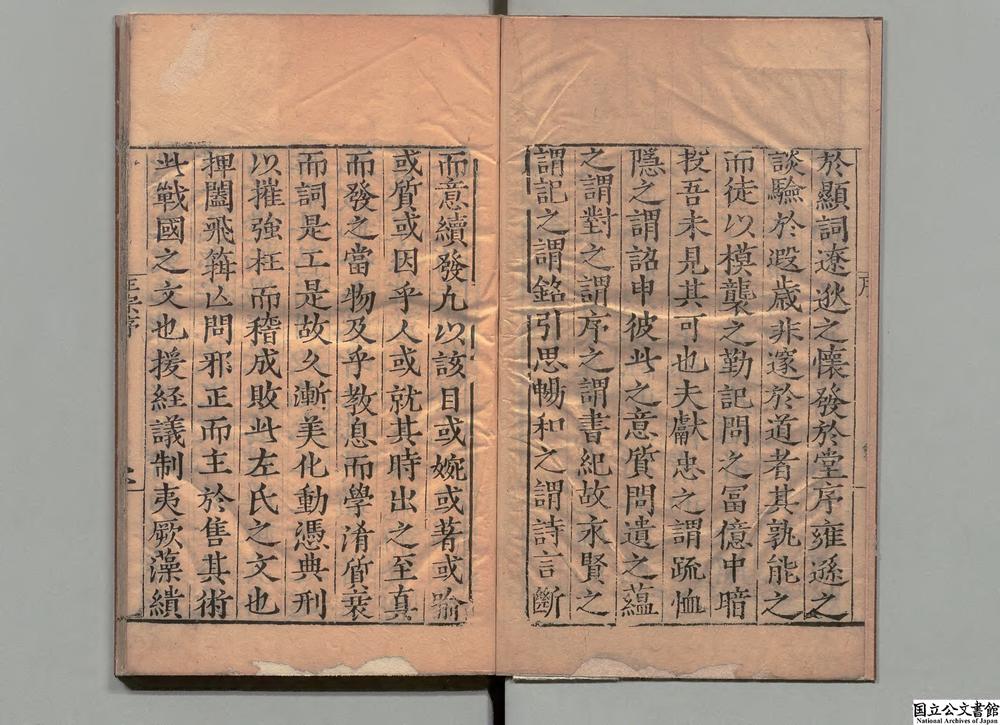 於顯詞遼逖之懷發於堂序雍遜之
談驗於遐歳非邃於道者其孰能之
而徒以模襲之勤記問之冨億中暗
投吾未見其可也夫獻忠之謂䟽恤
隱之謂詔申彼此之意質問遺之蘊
之謂對之謂序之謂書紀故永賢之
謂記之謂銘引思暢和之謂詩言斷
而意續發凢以該目或婉或著或喻
或質或因乎人或就其時出之至真
而發之當物及乎教息而學淆質衰
而詞是工是故久漸美化動憑典刑
以摧強枉而稽成敗此左氏之文也
捭闔飛箝亾問邪正而主於售其術
此戰國之文也援経議制夷厥藻繢
序
国立公文書館
National Archives of Japan